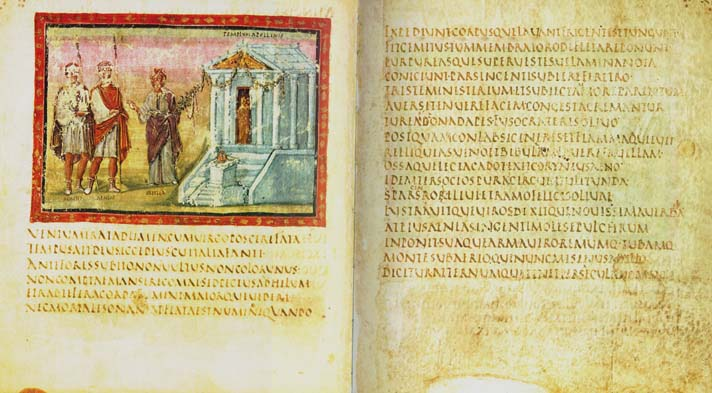 TEMPLUM APOLLINIS
AENEAS SIBYLLA
VENTUMERATADLIMENCUMVIRGOPOSCEREFATA
TEMPUSAITDEUSECCEDEUSCUITALIAFANTI
ANTEFORESSUBITONONVULTUSNONCOLORUNUS
NONCOMPTAEMANSERECOMAESEDPECTUSANHELUM
ETRABIEFERACORDATUMENTMAIORQUEVIDERI
NECMORTALESONANSADFLATAESTNUMINEQUANDO
EXPEDIUNTCORPUSQUELAVANTFRIGENTISETUNGUNT
FITGEMITUSTUMMEMBRATORODEFLETAREPONUNT
PURPUREASQUESUPERVESTESVELAMINANOTA
CONICIUNTPARSINGENTISUBIEREFERETRO
TRISTEMINISTERIUMETSUBIECTAMMOREPARENTUM
AVERSITENUEREFACEMCONGESTACREMANTUR
TUREADONADAPESFUSOCRATERESOLIVO
POSTQUAMCONLAPSICINERESETFLAMMAQUIEVIT
RELIQUIASVINOETBIBULAMLAVEREFAVILLAM
OSSAQUELECTACADOTEXITCORYNAEUSAENO
IDEMTERSOCIOSPURACIRCUMTULITUNDA
SPARGENSRORELEVIETRAMOFELICISOLIVAE
LUSTRAVITQUEVIROSDIXITQUENOVISSIMAVERBA
ATPIUSAENEASINGENTIMOLESEPULCHRUM
INPONITSUAQUEARMAVIROREMUMQUETUBAMQ
MONTESUBAERIOQUINUNCMISENUSABILLO
DICITURAETERNUMQUETENETPERSAECULANOMEN